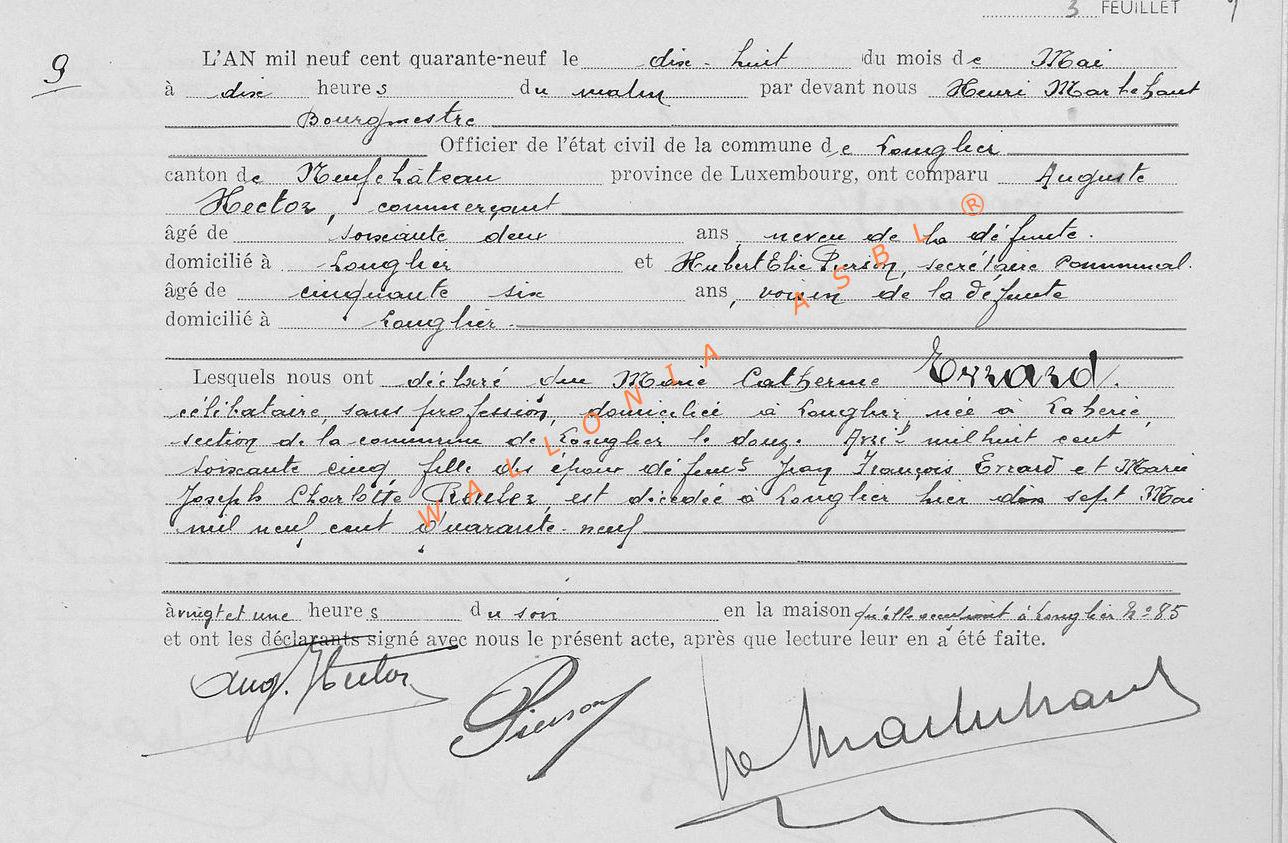 3 FEUILLET
9 L'AN mil neuf cent quarante-neuf le dix-huit du mois de Mai
à dix heures du matin par devant nous Henri Marbehant
Bourgmestre
Officier de l'état civil de la commune de Longlier
canton de Neufchâteau province de Luxembourg, ont comparu Auguste
Hector, commerçant
âgé de soixante deux ans, neveu de la défunte.
domicilié à Longlier et Hubert Elie Pierson, secrétaire communal.
âgé de cinquante six ans, voisin de la défunte
domicilié à Longlier.
Lesquels nous ont déclaré que Marie Catherine Errard.
célibataire, sans profession, domiciliée à Longlier, née à Laherie,
section de la commune de Longlier le douze Avril mil huit cent
soixante cinq fille des époux défunts Jean François Errard et Marie
Joseph Charlotte est décédée à Longlier hier dix sept Mai
mil neuf cent quarante-neuf
à vingt et une heures du soir en la maison qu'elle occupait à Longlier No 85
et ont les déclarants signé avec nous le présent acte, après que lecture leur en a été faite.
Aug. Hector
Pierson
WALLONIA ASBL ®